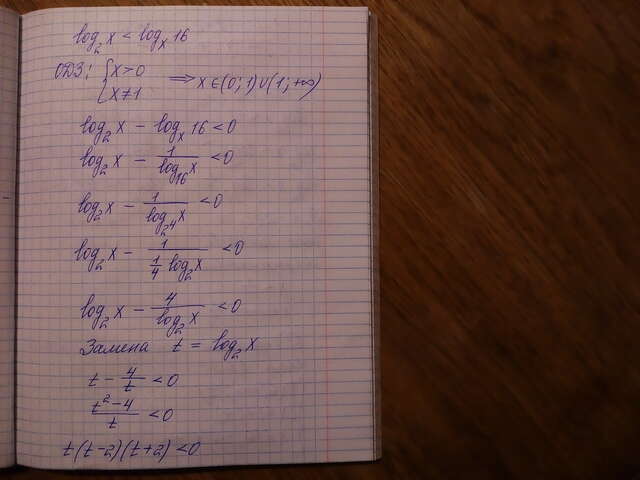 log₂x < logₓ16
ОДЗ: {x>0
{x≠1 ⟹ x∈(0;1)∪(1;+∞)
log₂x − logₓ16 < 0
log₂x − 1/log₁₆x < 0
log₂x − 1/log_{2⁴}x < 0
log₂x − 1/(1/4 log₂x) < 0
log₂x − 4/log₂x < 0
Замена t = log₂x
t − 4/t < 0
(t²−4)/t < 0
t(t−2)(t+2) < 0